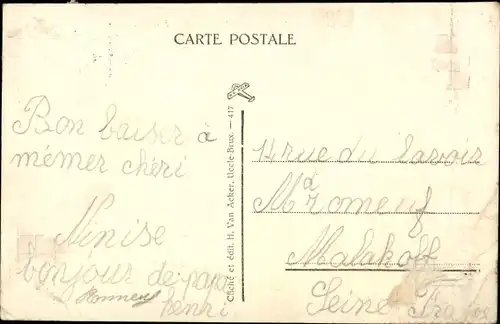 CARTE POSTALE
Bon baiser à
mémer chéri
Ninise
bonjour de papa
henri
Cliché et édit. H. Van Acker, Uccle-Brux. — 417
14 rue du lavoir
Md
Malakoff
Seine France